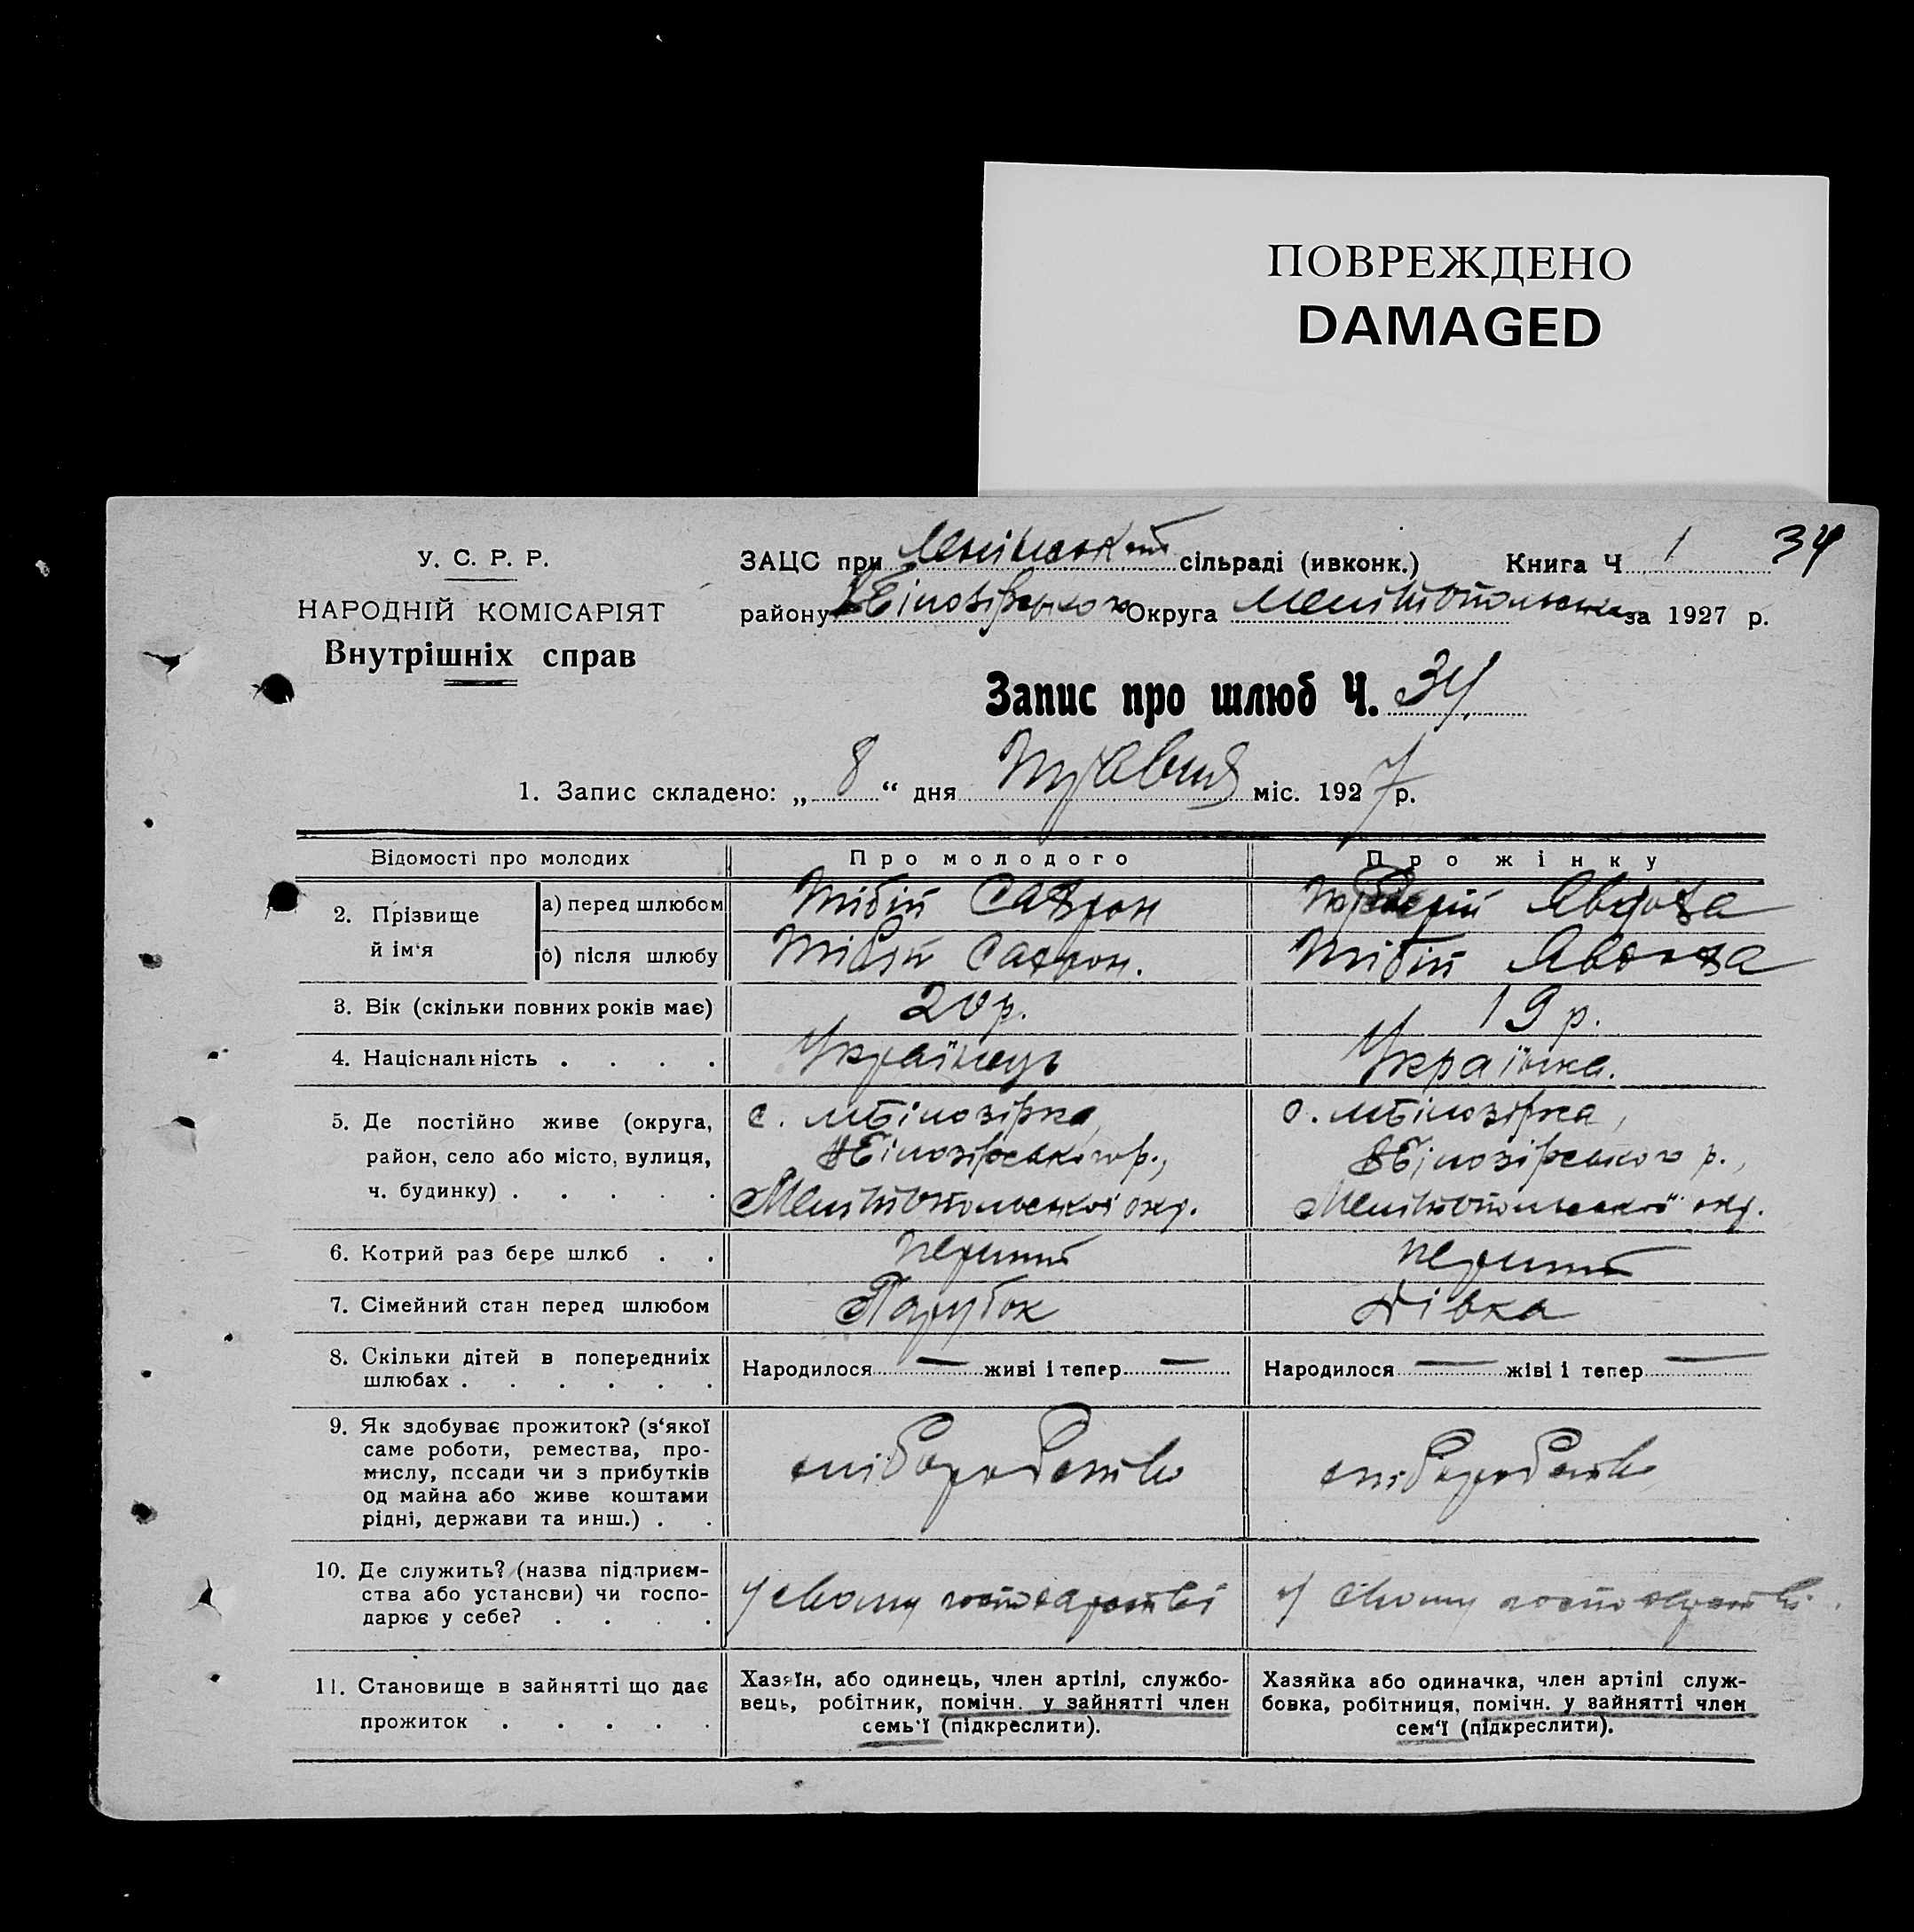 ПОВРЕЖДЕНО
DAMAGED
У. С. Р. Р.
НАРОДНІЙ КОМІСАРІЯТ
Внутрішніх справ
ЗАЦС при сільраді (ивконк.) Книга Ч 1 34
району Округа за 1927 р.
Запис про шлюб Ч. 34
1. Запис складено: „ 8 “ дня Травня міс. 1927 р.
Відомості про молодих Про молодого Про жінку
2. Прізвище й ім‘я
а) перед шлюбом Тибій Сафрон Явдоха
б) після шлюбу Тибій Сафрон. Тибій Явдоха
3. Вік (скільки повних років має) 20 р. 19 р.
4. Національність . . . . Українець Українка.
5. Де постійно живе (округа, с. мБілозірка, с. мБілозірка,
район, село або місто, вулиця, вБілозірського р., вБілозірського р.,
ч. будинку) . . . . . Мелітопольської окр. Мелітопольської окр.
6. Котрий раз бере шлюб . . перший перший
7. Сімейний стан перед шлюбом Парубок Дівка
8. Скільки дітей в попередниіх
шлюбах . . . . . .
Народилося — живі і тепер — Народилося — жіві і тепер —
9. Як здобуває прожиток? (з‘якої
саме роботи, ремества, про-
мислу, посади чи з прибутків
од майна або живе коштами
рідні, держави та инш.) . .
хліборобство хліборобство
10. Де служить? (назва підприєм-
ства або установи) чи госпо-
дарює у себе? . . . .
у свому господарстві у свому господарстві
11. Становище в зайнятті що дає
прожиток . . . . .
Хазяїн, або одинець, член артілі, службо-
вець, робітник, помічн. у зайнятті член
семь‘ї (підкреслити).
Хазяйка або одиначка, член артілі служ-
бовка, робітниця, помічн. у зайнятті член
сем‘ї (підкреслити).